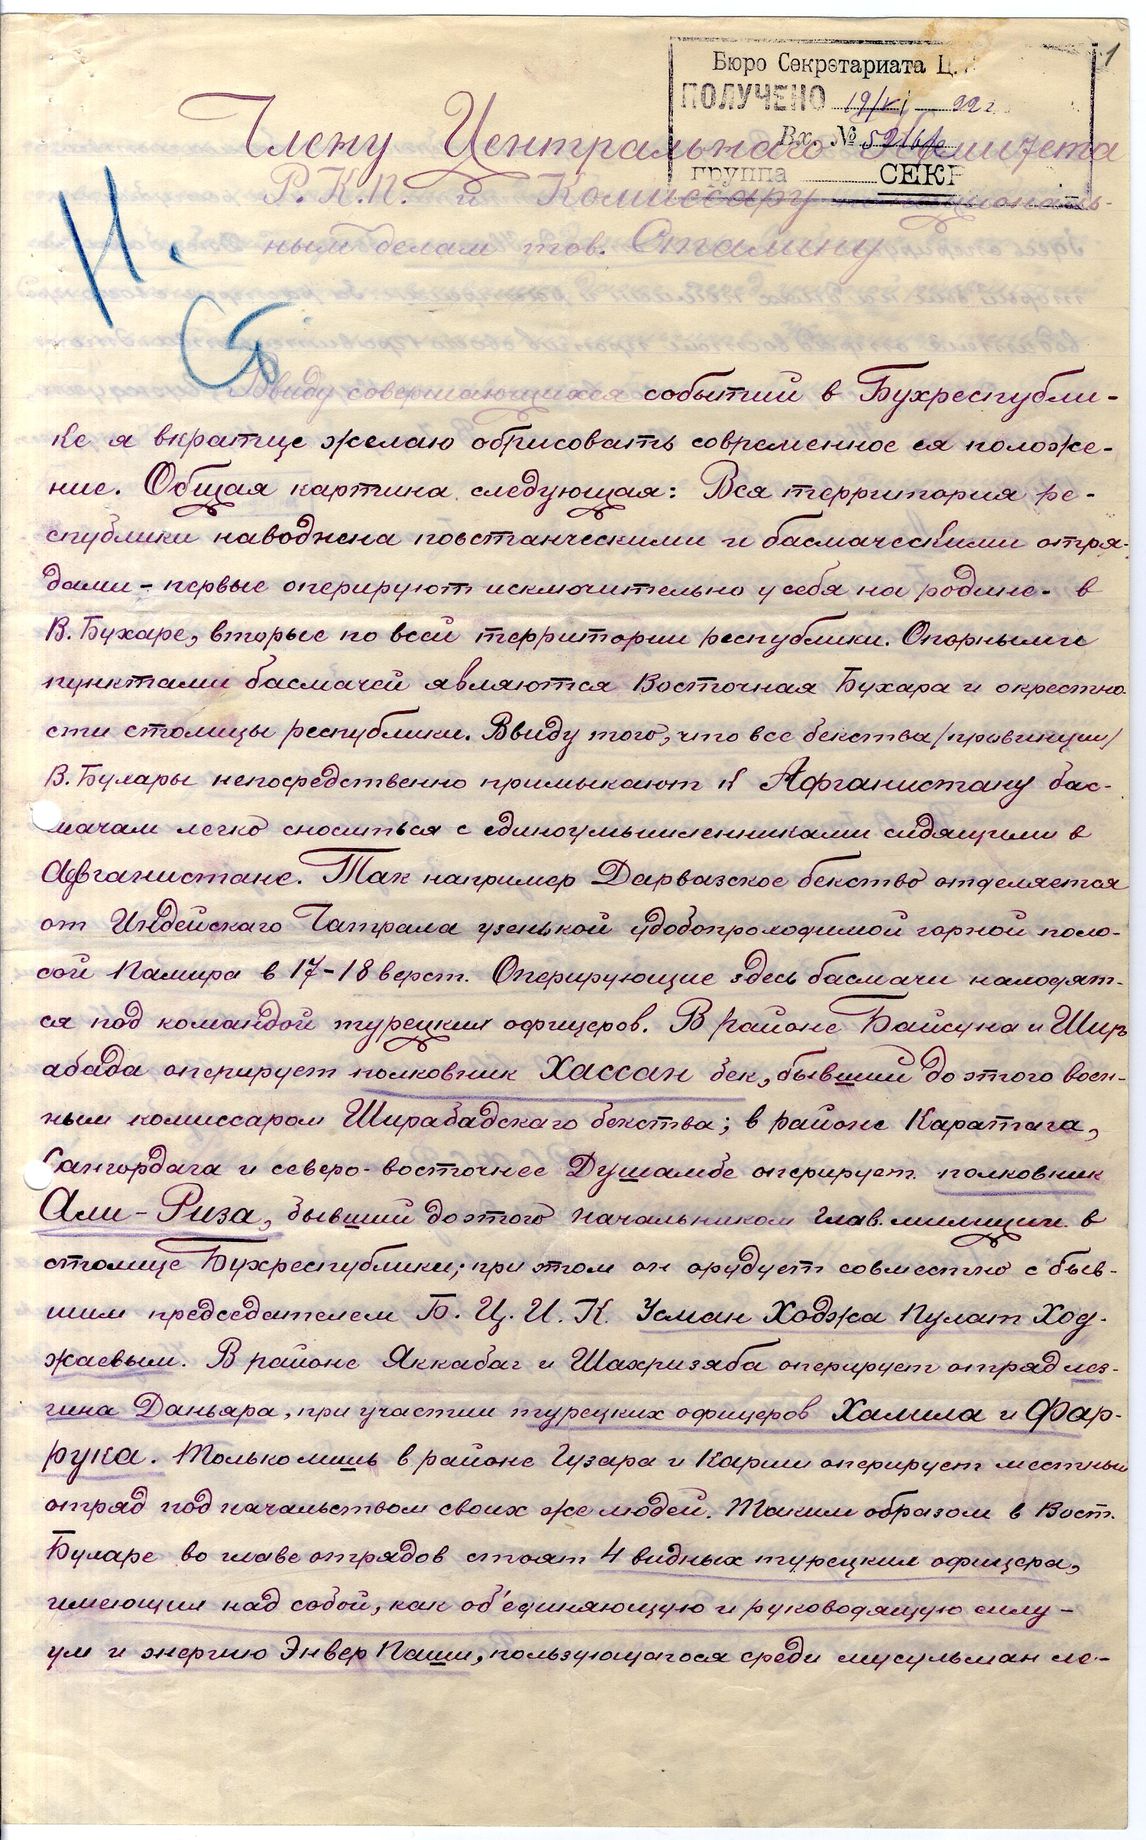 1
Бюро Секретариата Ц.
ПОЛУЧЕНО 19/VI 22 г.
Вх. №
группа СЕКР
Члену Центрального Комитета
Р.К.П. и Комиссару по националь-
ным делам тов. Сталину
Ввиду совершающихся событий в Бухреспубли-
ке я вкратце желаю обрисовать современное ея положе-
ние. Общая картина следующая: Вся территория ре-
спублики наводнена повстанческими и басмаческими отря-
дами - первые оперируют исключительно у себя на родине - в
В. Бухаре, вторые по всей территории республики. Опорными
пунктами басмачей являются Восточная Бухара и окрестно
сти столицы республики. Ввиду того, что все бекства /провинции/
В. Бухары непосредственно примыкают к Афганистану бас-
мачам легко сноситься с единоумышленниками сидящими в
Афганистане. Так например Дарвазское бекство отделяется
от Индейскаго Чатрала узенькой удобопроходимой горной поло-
сой Памира в 17-18 верст. Оперирующие здесь басмачи находят-
ся под командой турецких офицеров. В районе Байсуна и Шир
абада оперирует полковник Хассан бек, бывший до этого воен-
ным комиссаром Ширабадскаго бекства; в районе Каратага,
Сангордага и северо-восточнее Душамбе оперирует полковник
Али-Риза, бывший до этого начальником глав. милиции в
столице Бухреспублики; при этом он орудует совместно с быв-
шим председателем Б.Ц.И.К. Усман Ходжа Пулат Ход-
жаевым. В районе Яккабаг и Шахризяба оперирует отряд лез-
гина Даньяра, при участии турецких офицеров Халила и Фар-
рука. Только лишь в районе Гузара и Карши оперирует местный
отряд под начальством своих же людей. Таким образом в Вост.
Бухаре во главе отрядов стоят 4 видных турецких офицера,
имеющих над собой, как об'единяющую и руководящую силу -
ум и энергию Энвер Паши, пользующагося среди мусульман ле-